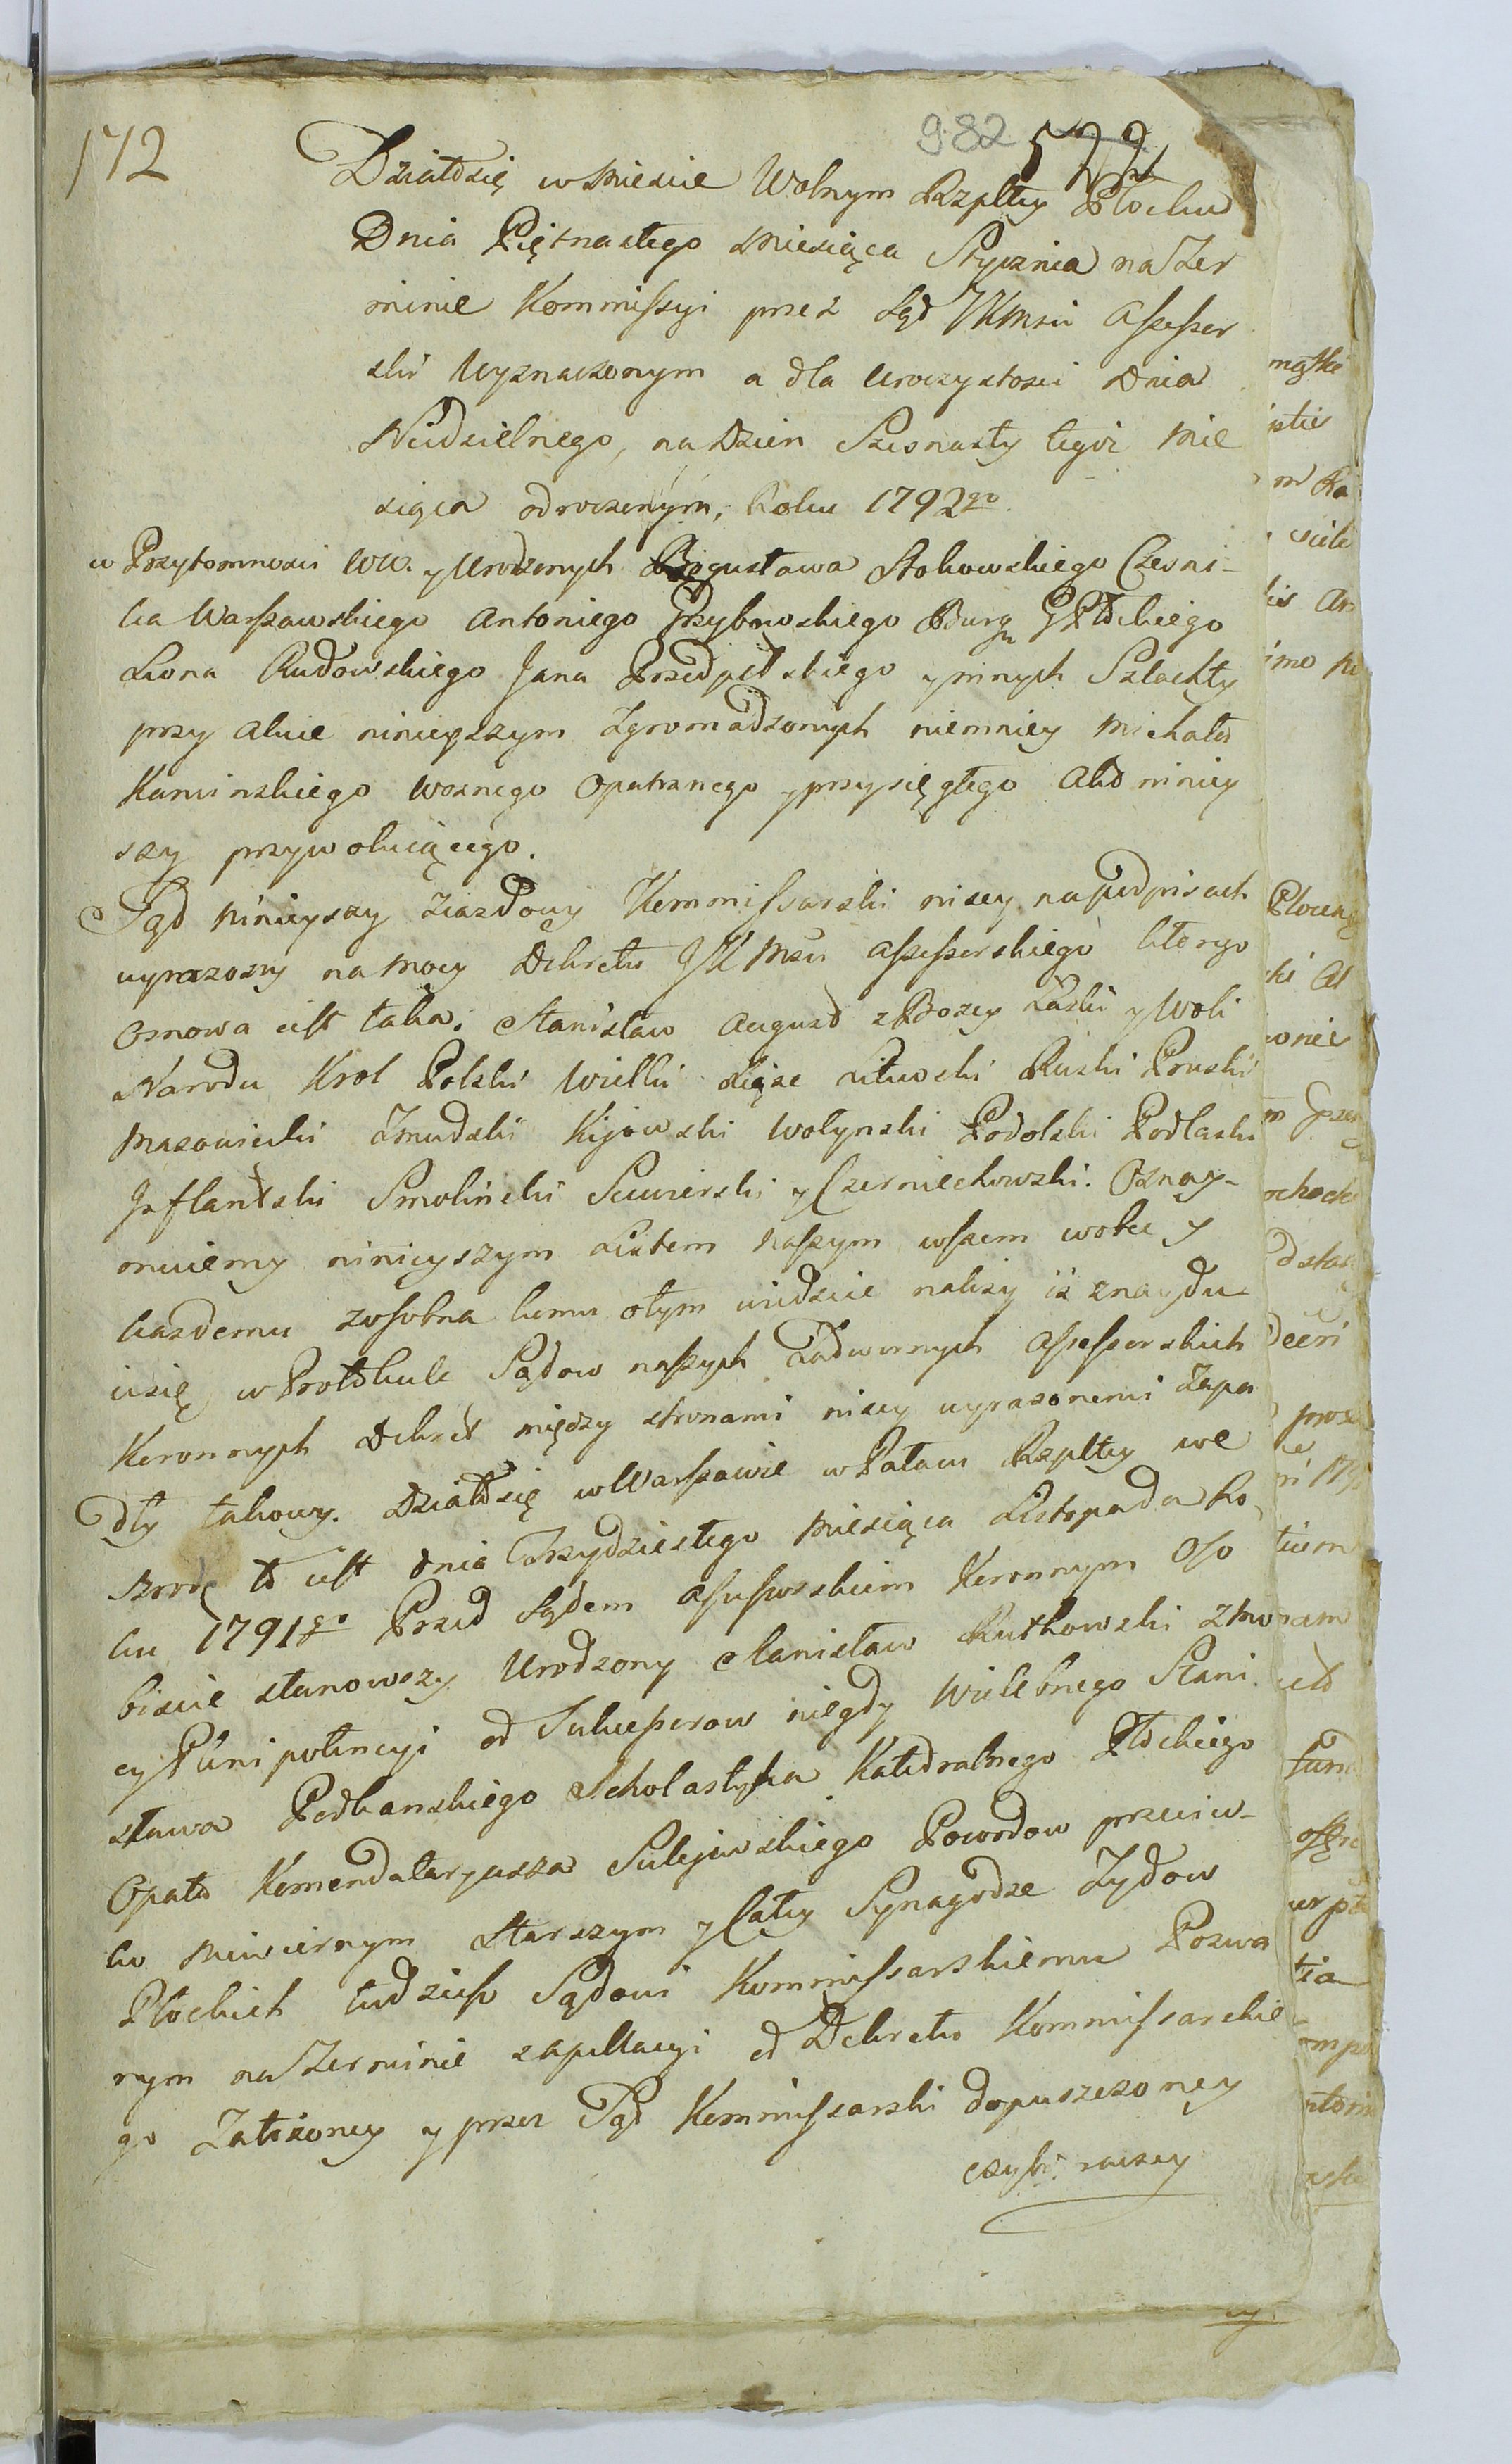 172
982 522
Działo się w Miescie Wolnym Rzpltey Płocku
Dnia Piętnastego Miesiąca Stycznia na Ter
minie Kommissyi przez Sąd JKMsci Assessor
ski Wyznaczonym a dla Uroczystosci Dnia
Niedzielnego, na Dzien Szesnasty tegoż Mie
siąca odroczonym, Roku 1792go
w Przytomnosci WW. y Urodzonych Bogusława Stokowskiego Czesni-
ka Warszawskiego Antoniego Grzybowskiego Burg G Płockiego
Leona Rudowskiego Jana Przedpełskiego y innych Szlachty
przy Akcie ninieyszym zgromadzonych niemniey Michała
Kaminskiego Woznego Opatrznego y przysięgłego Akt niniey
szy przywołuiącego.
Sąd ninieyszy Ziazdowy Kommissarski nizey na podpisach
wyrazony na Mocy Dekretu JKMsci Assessorskiego ktorego
Osnowa iest taka. Stanisław August z Bozey Łaski y Woli
Narodu Krol Polski Wielki Xiąze Litewski Ruski Pruski
Mazowiecki Zmudzki Kijowski Wołynski Podolski Podlaski
Inflantski Smolinski Siewierski y Czerniechowski. Oznay-
muiemy ninieyszym Listem naszym wszem wobec y
kazdemu zosobna komu otym wiedziec nalezy iż znaydu
iesię w Protokule Sądow naszych Zadwornych Assessorskich
Koronnych Dekret między stronami nizey wyrazonemi Zapa
dły takowy. Działo się w Warszawie w Pałacu Rzpltey we
Srodę to iest dnia Trzydziestego Miesiąca Listopada Ro
ku 1791go Przed Sądem Assessorskim Koronnym Oso
biscie stanowszy Urodzony Stanisław Rutkowski z Mo
cy Plenipotencyi od Sukcessorow niegdy Wielebnego Stani
sława Podkanskiego Scholastyka Katedralnego Płockiego
Opata Komendataryusza Sulejowskiego Powodow przeciw-
ko Niewiernym Starszym y Całey Synagodze Zydow
Płockich tudziesz Sądowi Kommissarskiemu Pozwa
nym na Terminie z apellacyi od Dekretu Kommissarskie
go Załozoney y przez Sąd Kommissarski dopuszczoney
czyli raczey